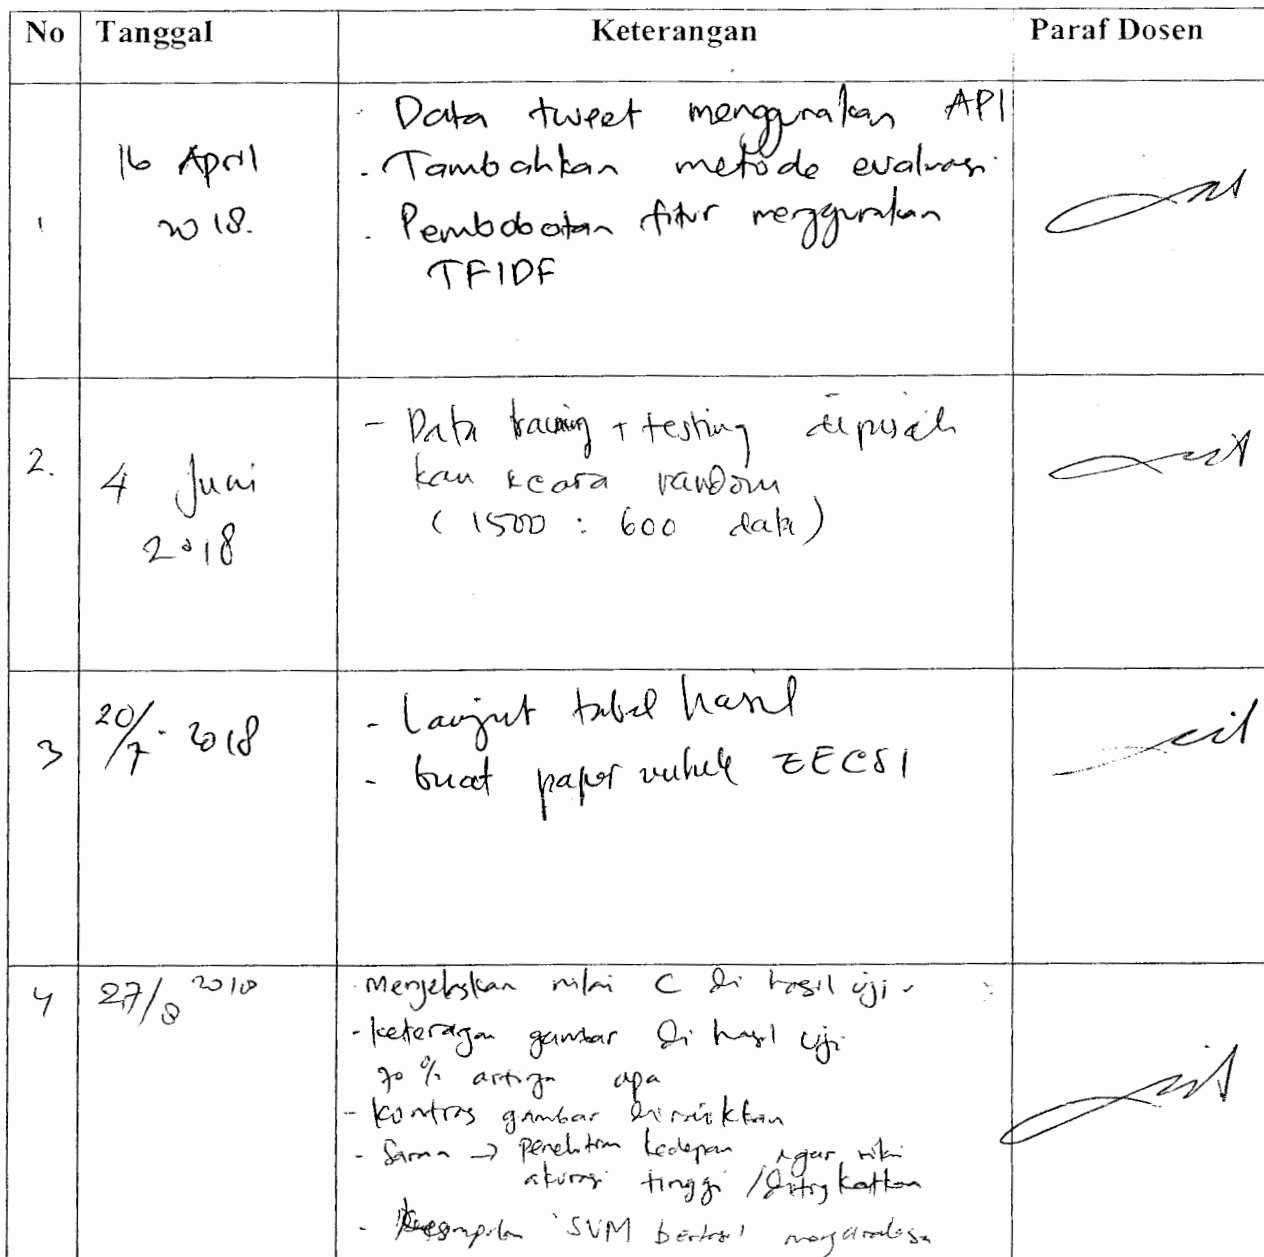 No Tanggal Keterangan Paraf Dosen
1
16 April
2018.
- Data tweet menggunakan API
- Tambahkan metode evaluasi
- Pembobotan fitur menggunakan
TFIDF
2.
4 Juni
2018
- Data training + testing dipisah
kan secara random
( 1500 : 600 data )
3
20/7 - 2018
- Lanjut tabel hasil
- buat paper untuk EECSI
4
27/8 2018
- Menjelaskan nilai C di hasil uji
- keterangan gambar di hasil uji
70 % artinya apa
- kontras gambar dinaikkan
- Saran → penelitian kedepan agar nilai
akurasi tinggi / ditingkatkan
- SVM berhasil